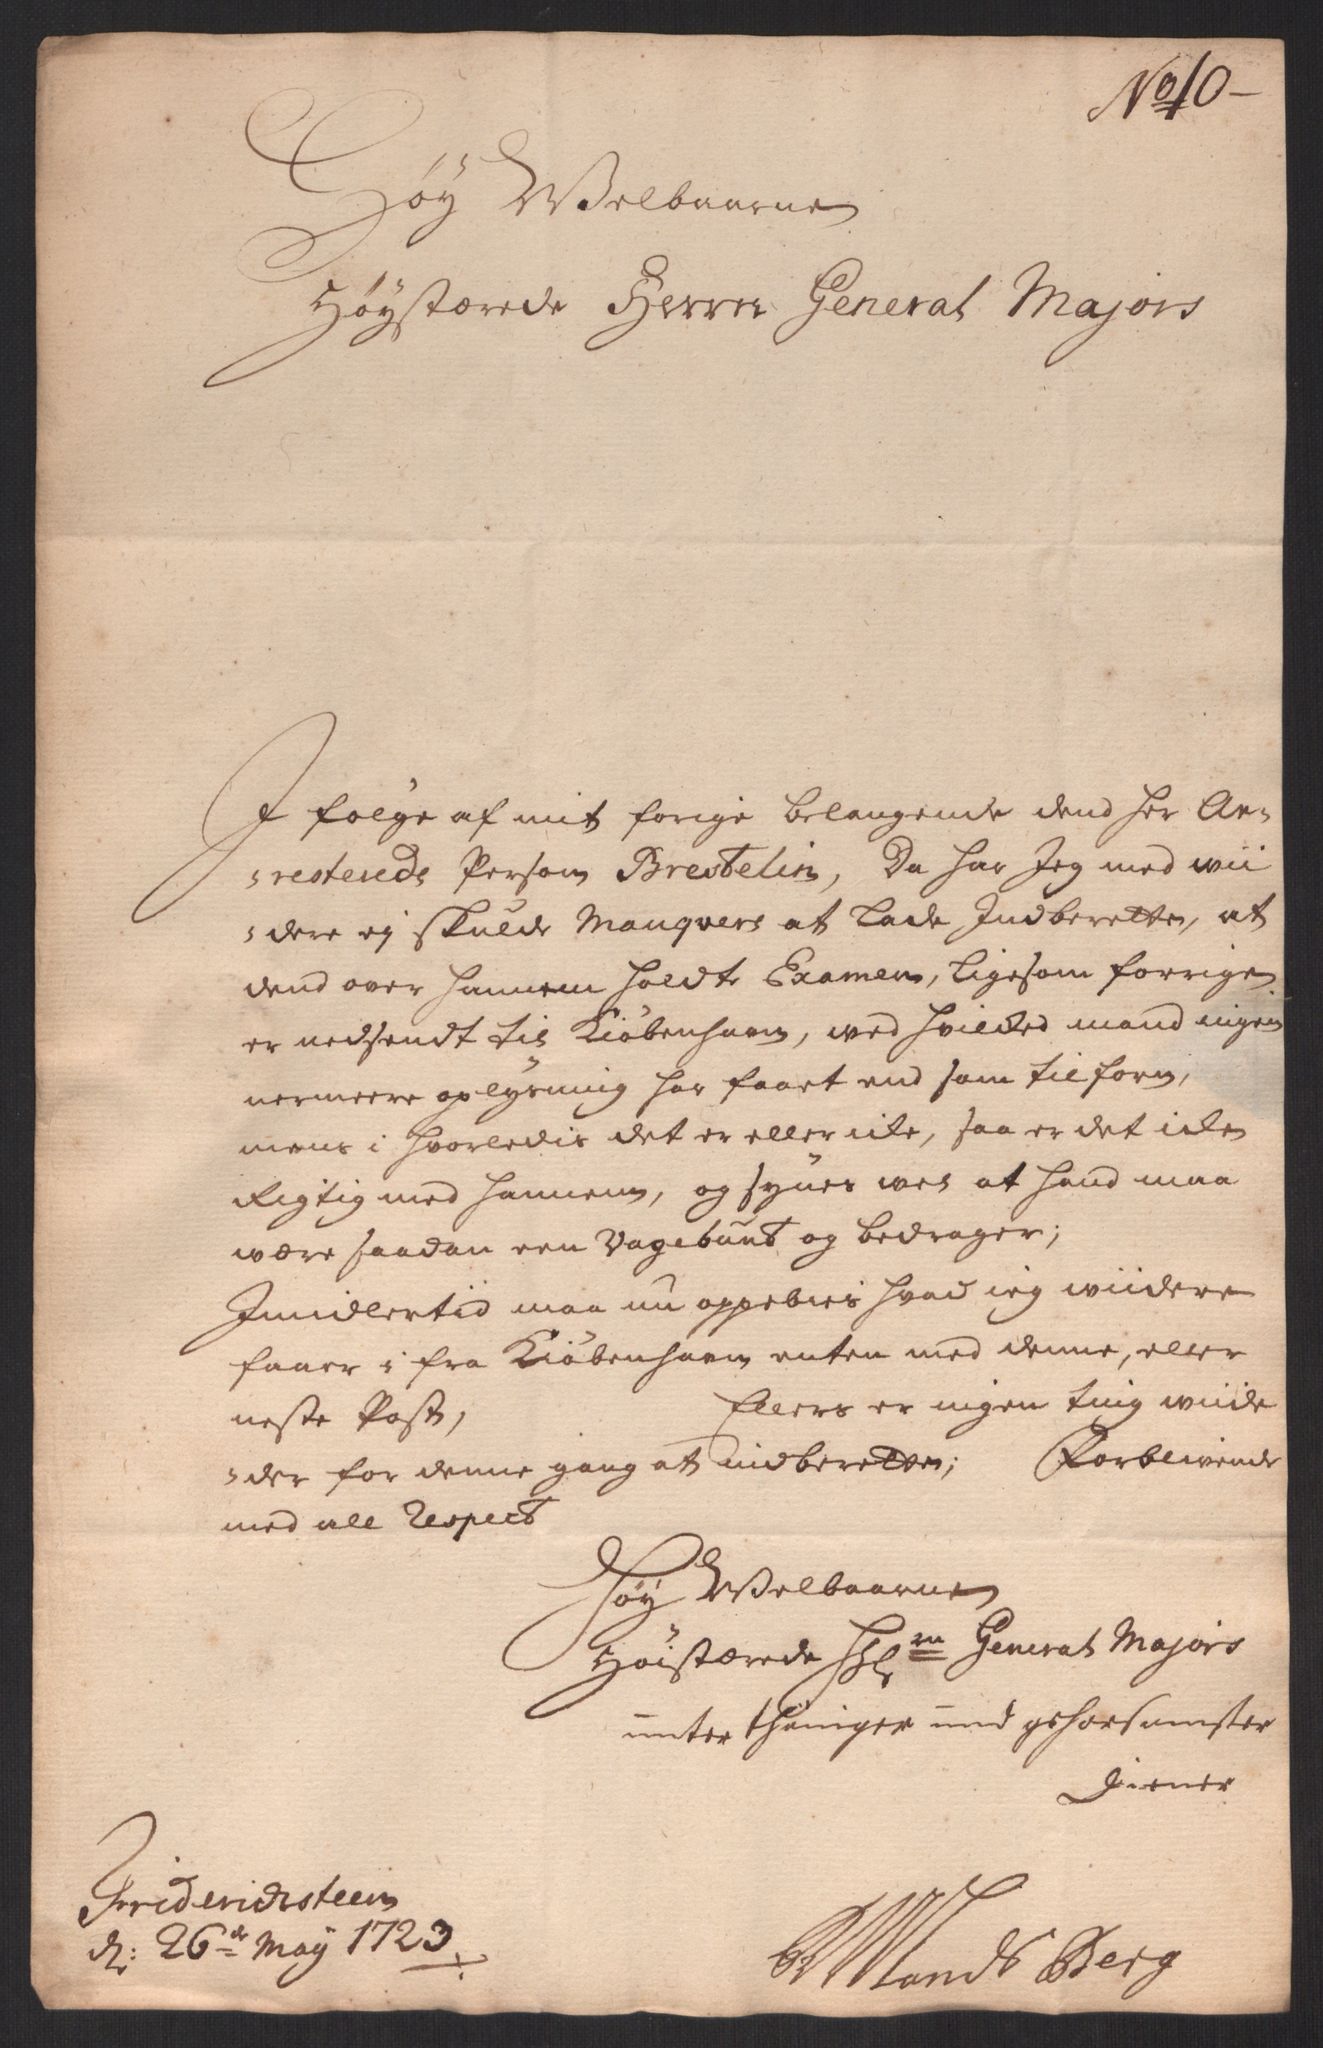 No 10-
Høy Welbaarne
Høystærede Herre General Majors
I følge af mit forige belangende dend her Ar=
=resterede Person Brestelin, Da har Jeg med wii
=dere ej skulde Manqvere at lade Indberette, at
dend over hannem holdte Examen, ligesom forrige
er nedsendt til Kiøbenhavn, wed hvilcked mand ingen
nermeere oplysning har faaet end som tilforn,
mens i hvorledis det er eller icke, saa er det icke
Rigtig med hannem, og synes wel at hand maa
wære saadan een Vagebunt og bedrager;
Imidlertid maa nu oppebies hvad ieg wiidere
faaer i fra Kiøbenhavn enten med denne, eller
neste Post, Ellers er ingen ting wiide
=der for denne gang at indberette; Forblivende
med all Respect
Høy Welbaarne
Høistærede Hr General Majors
unterthäniger und gehorsamster
Diener
Fridericksteen
d: 26de May 1723
Landsberg